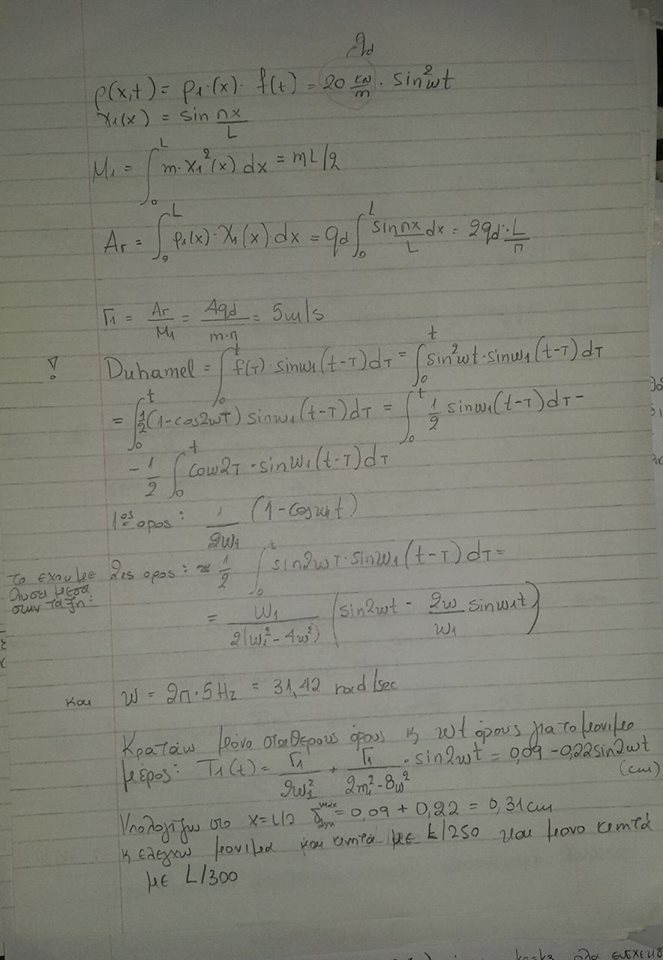 qd
p(x,t) = p1·(x)· f(t) = 20 kN/m · sin²ωt
X1(x) = sin πx/L
M1 = ∫₀ᴸ m·X1²(x) dx = mL/2
Ar = ∫₀ᴸ p1(x)·X1(x) dx = qd ∫₀ᴸ sin πx/L dx = 2qd·L/π
Γ1 = Ar/M1 = 4qd/m·π = 5m/s
! Duhamel = ∫₀ᵗ f(τ)·sinω1(t-τ)dτ = ∫₀ᵗ sin²ωt·sinω1(t-τ)dτ
= ∫₀ᵗ 1/2(1-cos2ωτ) sinω1(t-τ)dτ = ∫₀ᵗ 1/2 sinω1(t-τ)dτ -
- 1/2 ∫₀ᵗ cosω2τ·sinω1(t-τ)dτ
1ος ορος: 1/2ω1 (1-cosω1t)
το εχουμε λυσει μεσα στην ταξη:
2ος ορος: 1/2 ∫₀ᵗ sin2ωτ·sinω1(t-τ)dτ =
= ω1/2(ω1²-4ω²) (sin2ωt - 2ω/ω1 sinω1t)
και ω = 2π·5Hz = 31,42 rad/sec
Κρατάω μονο σταθερους όρους κ ωt όρους για το μονιμο
μέρος: T1(t) = Γ1/2ω1² + Γ1/2ω1²-8ω² · sin2ωt = 0,09 - 0,22sin2ωt
(cm)
Υπολογίζω στο x=L/2 δ max δυν = 0,09 + 0,22 = 0,31cm
κ ελεγχω μονιμα και κινητά με L/250 και μονο κινητά
με L/300